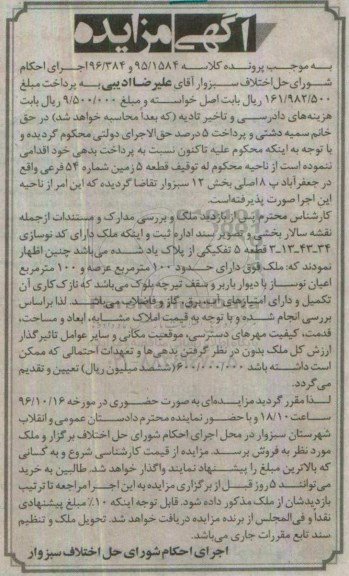 آگهی مزایده
به موجب پرونده کلاسه ۹۵/۱۵۸۴ و ۹۶/۳۸۴ اجرای احکام
شورای حل اختلاف سبزوار آقای علیرضا ادیبی به پرداخت مبلغ
۱۶۱/۹۸۲/۵۰۰ ریال بابت اصل خواسته و مبلغ ۹/۵۰۰/۰۰۰ ریال بابت
هزینه‌های دادرسی و تاخیر تادیه (که بعدا محاسبه خواهد شد) در حق
خانم سمیه دشتی و پرداخت ۵ درصد حق‌الاجرای دولتی محکوم گردیده و
با توجه به اینکه محکوم علیه تاکنون نسبت به پرداخت بدهی خود اقدامی
ننموده است از ناحیه محکوم له توقیف قطعه ۵ زمین شماره ۵۴ فرعی واقع
در جعفرآباد پ ۸ اصلی بخش ۱۲ سبزوار تقاضا گردیده که این امر از ناحیه
این اجرا صورت پذیرفته‌است.
کارشناس محترم پس از بازدید ملک و بررسی مدارک و مستندات ازجمله
نقشه سالار بخشی و تصویر سند اداره ثبت و اینکه ملک دارای کد نوسازی
۳۴-۴۳-۱۳-۳ قطعه ۵ تفکیکی از پلاک یاد شده می‌باشد چنین اظهار
نمودند که: ملک فوق دارای حدود ۱۰۰ مترمربع عرصه و ۱۰۰ مترمربع
اعیان نوساز با دیوار باربر و سقف تیرچه بلوک می‌باشد که نازک کاری آن
تکمیل و دارای امتیازهای آب، برق، گاز و فاضلاب می‌باشد. لذا براساس
بررسی انجام شده و با توجه به قیمت املاک مشابه، ابعاد و مساحت،
قدمت، کیفیت مهرهای دسترسی، موقعیت مکانی و سایر عوامل تاثیرگذار
ارزش کل ملک بدون در نظر گرفتن بدهی‌ها و تعهدات احتمالی که ممکن
است داشته باشد ۶۰۰/۰۰۰/۰۰۰ (ششصد میلیون ریال) تعیین و تقدیم
می‌گردد.
لذا مقرر گردید مزایده‌ای به صورت حضوری در مورخه ۹۶/۱۰/۱۶
ساعت ۱۸/۱۰ و با حضور نماینده محترم دادستان عمومی و انقلاب
شهرستان سبزوار در محل اجرای احکام شورای حل اختلاف برگزار و ملک
مورد نظر به فروش برسد. مزایده از قیمت کارشناسی شروع و به کسانی
که بالاترین مبلغ را پیشنهاد نمایند واگذار خواهد شد. طالبین به خرید
می‌توانند ۵ روز قبل از برگزاری مزایده به این اجرا مراجعه تا ترتیب
بازدیدشان از ملک مذکور داده شود. قابل توجه اینکه ۱۰٪ مبلغ پیشنهادی
نقدا و فی‌المجلس از برنده مزایده دریافت خواهد شد. تحویل ملک و تنظیم
سند تابع مقررات جاری می‌باشد.
اجرای احکام شورای حل اختلاف سبزوار